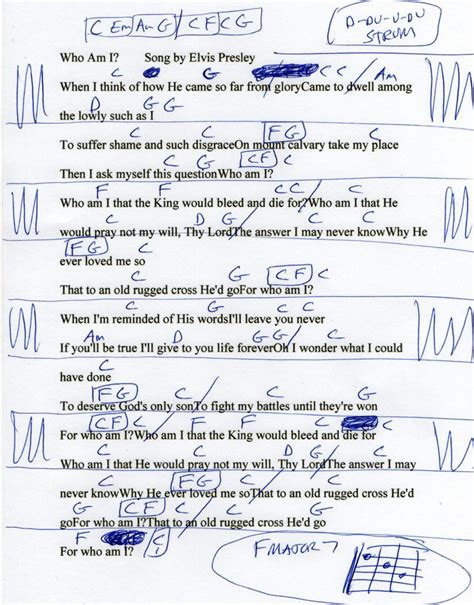 C Em Am G / C F C G
D-DU-U-DU
STRUM
Who Am I? Song by Elvis Presley
C G C C Am
When I think of how He came so far from gloryCame to dwell among
D G G
the lowly such as I
C C F G C
To suffer shame and such disgraceOn mount calvary take my place
C G C F C
Then I ask myself this questionWho am I?
F F C C F
Who am I that the King would bleed and die for?Who am I that He
C D G C
would pray not my will, Thy LordThe answer I may never knowWhy He
F G
ever loved me so
C G C F C
That to an old rugged cross He'd goFor who am I?
C G C C
When I'm reminded of His wordsI'll leave you never
Am D G G C
If you'll be true I'll give to you life foreverOh I wonder what I could
C
have done
F G C C G
To deserve God's only sonTo fight my battles until they're won
C F C F F C
For who am I?Who am I that the King would bleed and die for
F C D G
Who am I that He would pray not my will, Thy LordThe answer I may
C F G C
never knowWhy He ever loved me soThat to an old rugged cross He'd
G C F C C G
goFor who am I?That to an old rugged cross He'd go
F C
For who am I?
FMAJOR7